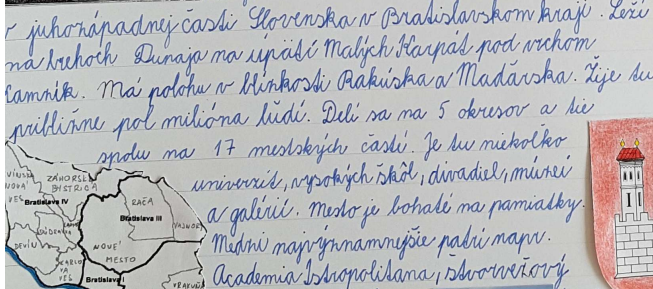 v juhozápadnej časti Slovenska v Bratislavskom kraji. Leží
na brehoch Dunaja na úpätí Malých Karpát pod vrchom
Kamzík. Má polohu v blízkosti Rakúska a Maďarska. Žije tu
približne pol milióna ľudí. Delí sa na 5 okresov a tie
spolu na 17 mestských častí. Je tu niekoľko
univerzít, vysokých škôl, divadiel, múzeí
a galérií. Mesto je bohaté na pamiatky.
Medzi najvýznamnejšie patrí napr.
Academia Istropolitana, štvorvežový
ZÁHORSKÁ
BYSTRICA
NOVÁ
VES
Bratislava IV
RAČA
Bratislava III
VAJNORY
NOVÉ
MESTO
DEVÍN
KARLO
VA
VES
Bratislava I